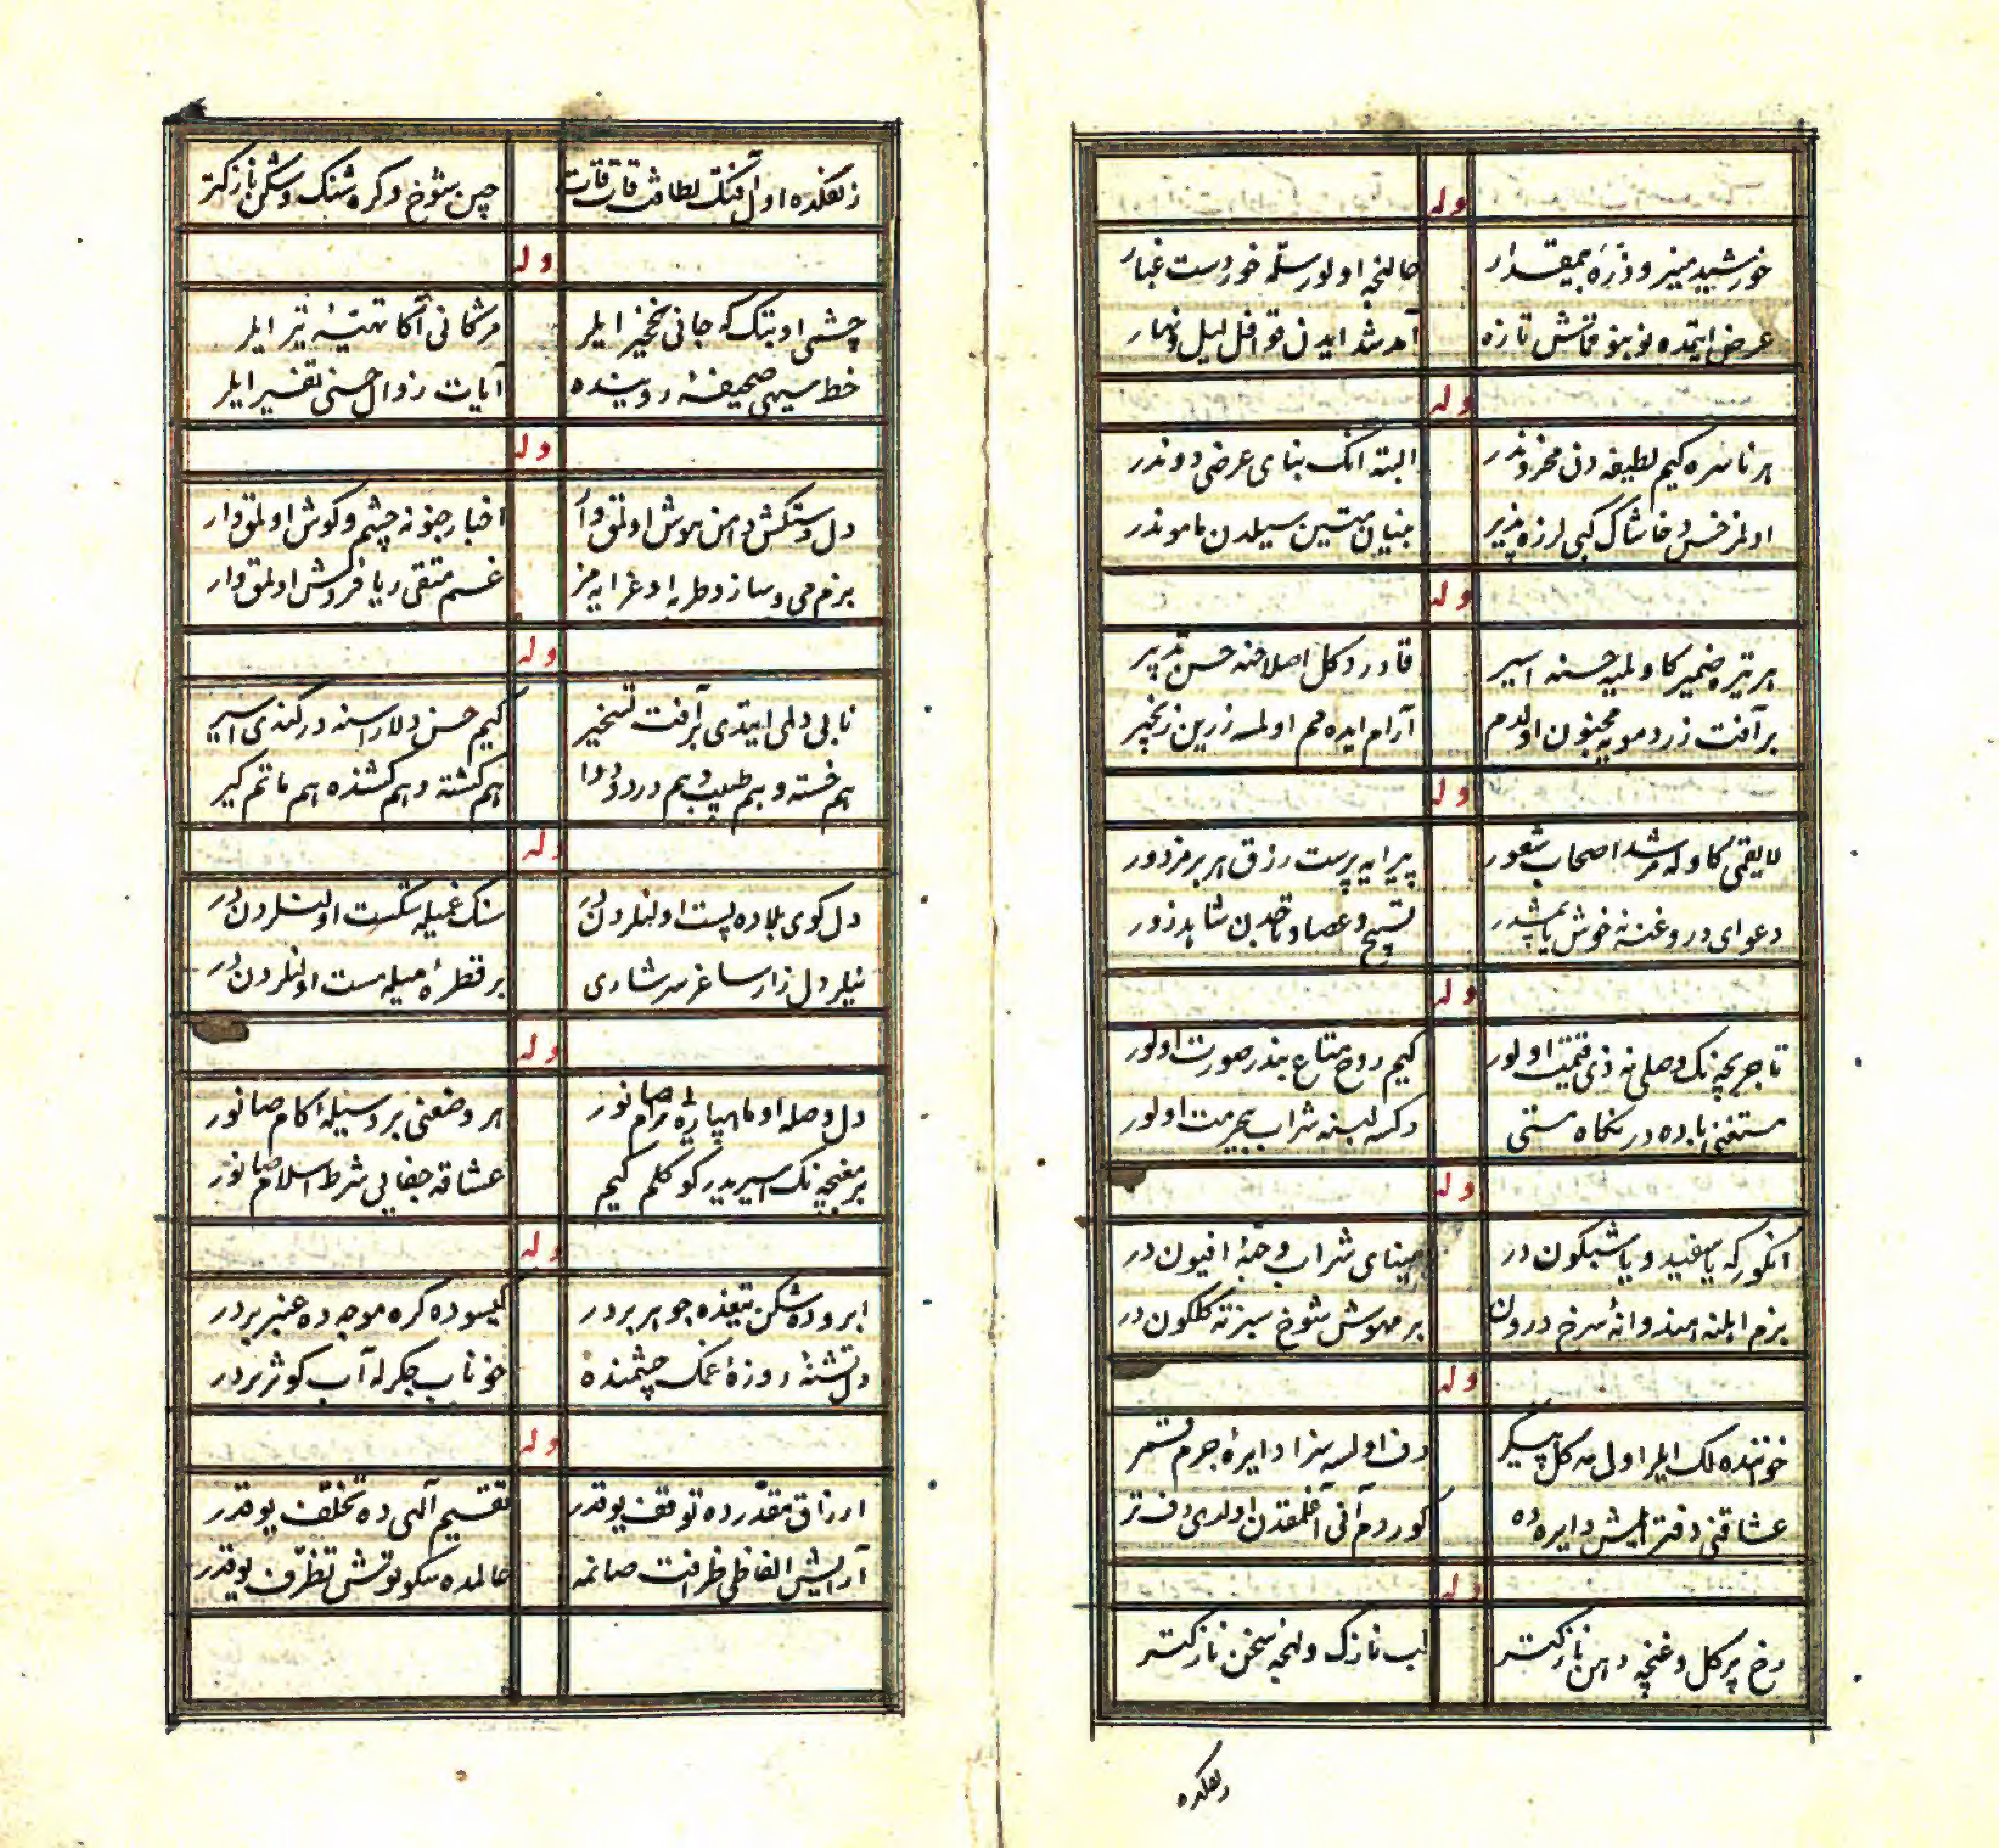 وله
خورشید منیر و ذرۀ بیمقدار حالنجه اولور سلمه خور دست غبار
عرض ایتمده نو بنو قماش تازه آمد شد ایدن قوافل لیل و نهار
وله
هر ناسره کیم لطیفه دن محزوندر البته انک بنای عرضی دوندر
اولمز خس و خاشاک کبی لرزه پذیر بنیان متین سیلدن ماموندر
وله
هر تیره ضمیر کاولمیه حسنه اسیر قادر دکل اصلاحنه حسن تدبیر
بر آفت زرد مویه مجنون اولدم آرام ایده مم اولمسه زرین زنجیر
وله
لایقمی کاوله مرشد اصحاب شعور پیرایه پرست رزق هر بر مزدور
دعوای دروغنه خوش یاپشدر تسبیح و عصا و تاجدن شاهد زور
وله
تاجر بچه نک وصلی نه ذی قیمت اولور کیم روح متاع بندر صورت اولور
مستغنی باده در نکاه مستی دکسه لبنه شراب بیحرمت اولور
وله
انکور که یا سفید و یا شبکون در مینای شراب و حبۀ افیون در
بزم اهلنه هندوانۀ سرخ درون بر مهوش شوخ سبز ته کلکون در
وله
خواننده لک ایلر اول مه کل پیکر دف اولسه سزا دایرۀ جرم قمر
عشاقنی دفتر ایلمش دایره ده کوردم آنی آغلمقدن اولدی دف تر
وله
رخ پر کل و غنچه دهن نازکتر لب نازک و لهجۀ سخن نازکتر
زلفکده
زلفکده اول آفتک لطافت قات قات چین شوخ و کره شنک و شکن نازکتر
وله
چشمی او بتک که جانی نخجیر ایلر مژکانی آکا تهیۀ تیر ایلر
خط سیهی صحیفۀ رویینده آیات زوال حسنی تفسیر ایلر
وله
دل دستکش دامن هوش اولمق وار اخبار جنونه چشم و کوش اولمق وار
بزم می و ساز و طربه اوغرایه مز غم متقی ریا فروش اولمق وار
وله
نابی دلی ایتدی بر آفت تسخیر کیم حسن دلاراسنه در کندی اسیر
هم خسته و هم طبیب و هم درد و دوا هم کشته و هم کشنده هم ماتم کیر
وله
دل کوی بلاده پست اولنلردندر سنک غمیله شکست اولنلردندر
نیلر دل زار ساغر سرشاری بر قطرۀ میله مست اولنلردندر
وله
دل وصله او ماهپاره یی رام صانور هر وضعنی بر وسیلۀ کام صانور
بر مغبچه نک اسیریدر کوکلم کیم عشاقه جفایی شرط اسلام صانور
وله
ابروده شکن تیغده جوهر بردر کیسوده کره موجه ده عنبر بردر
دل تشنۀ روزۀ غمک چشمنده خوناب جکرله آب کوثر بردر
وله
ارزاق مقدرده توقف یوقدر تقسیم آلهی ده تخلف یوقدر
آرایش الفاظی ظرافت صانمه عالمده سکوتوش تظرف یوقدر